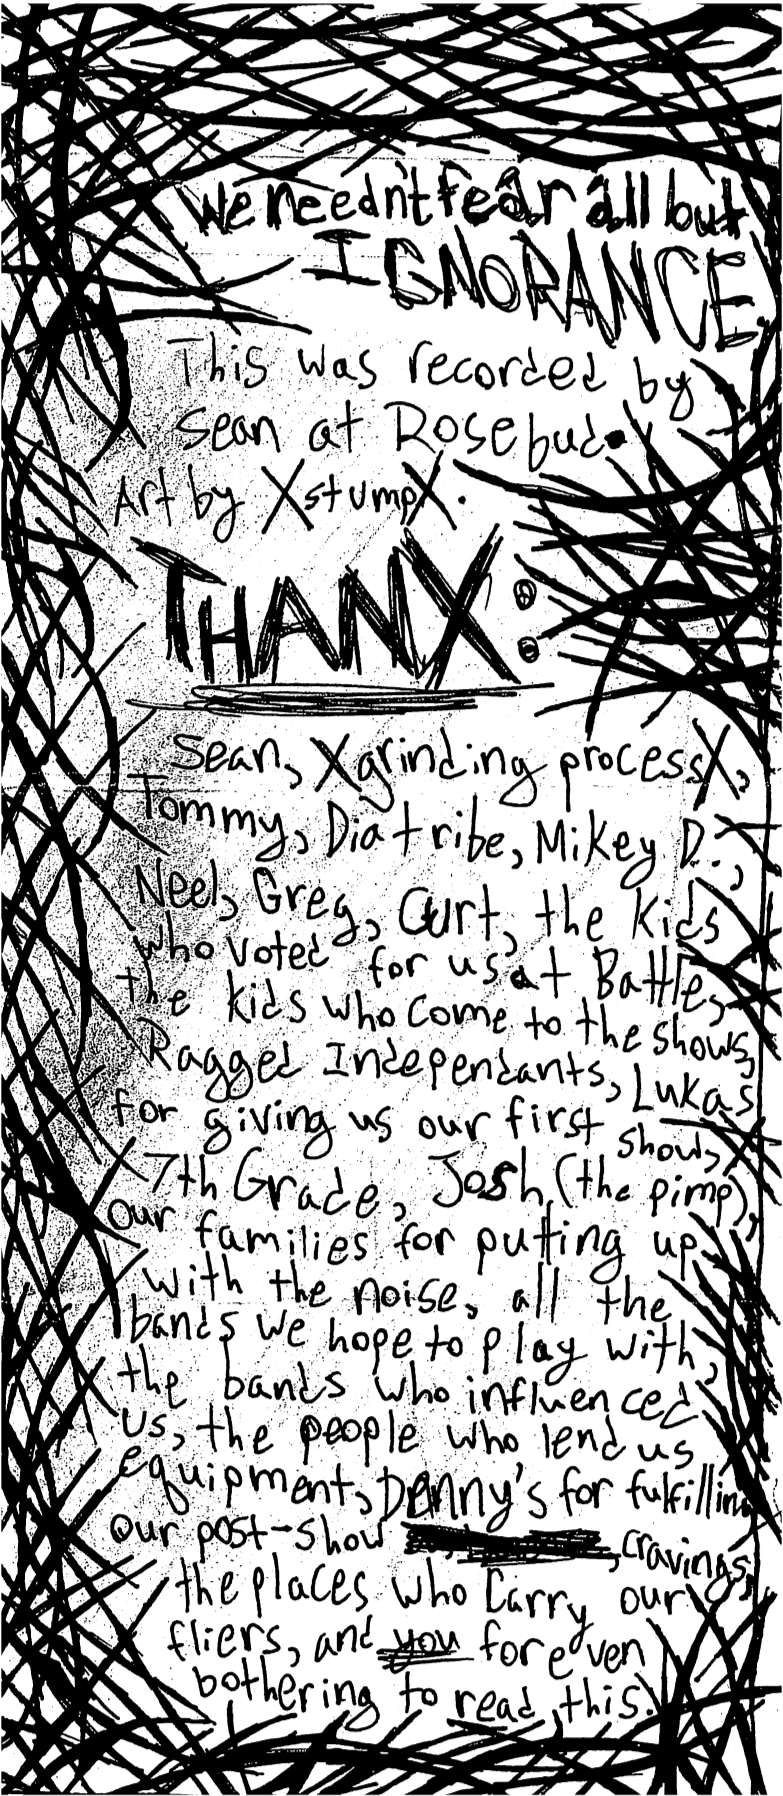 We needn't fear all but
IGNORANCE.
This was recorded by
Sean at Rosebud.
Art by XstumpX.
THANX:
Sean, Xgrinding processX,
Tommy, Diatribe, Mikey D.,
Neel, Greg, Curt, the kids
who voted for us at Battle,
the kids who come to the shows,
Ragged Independants, Lukas
for giving us our first show,
7th Grade, Josh (the pimp),
our families for putting up
with the noise, all the
bands we hope to play with,
the bands who influenced
us, the people who lend us
equipment, Denny's for fulfilling
our post-show cravings,
the places who carry our
fliers, and you for even
bothering to read this.